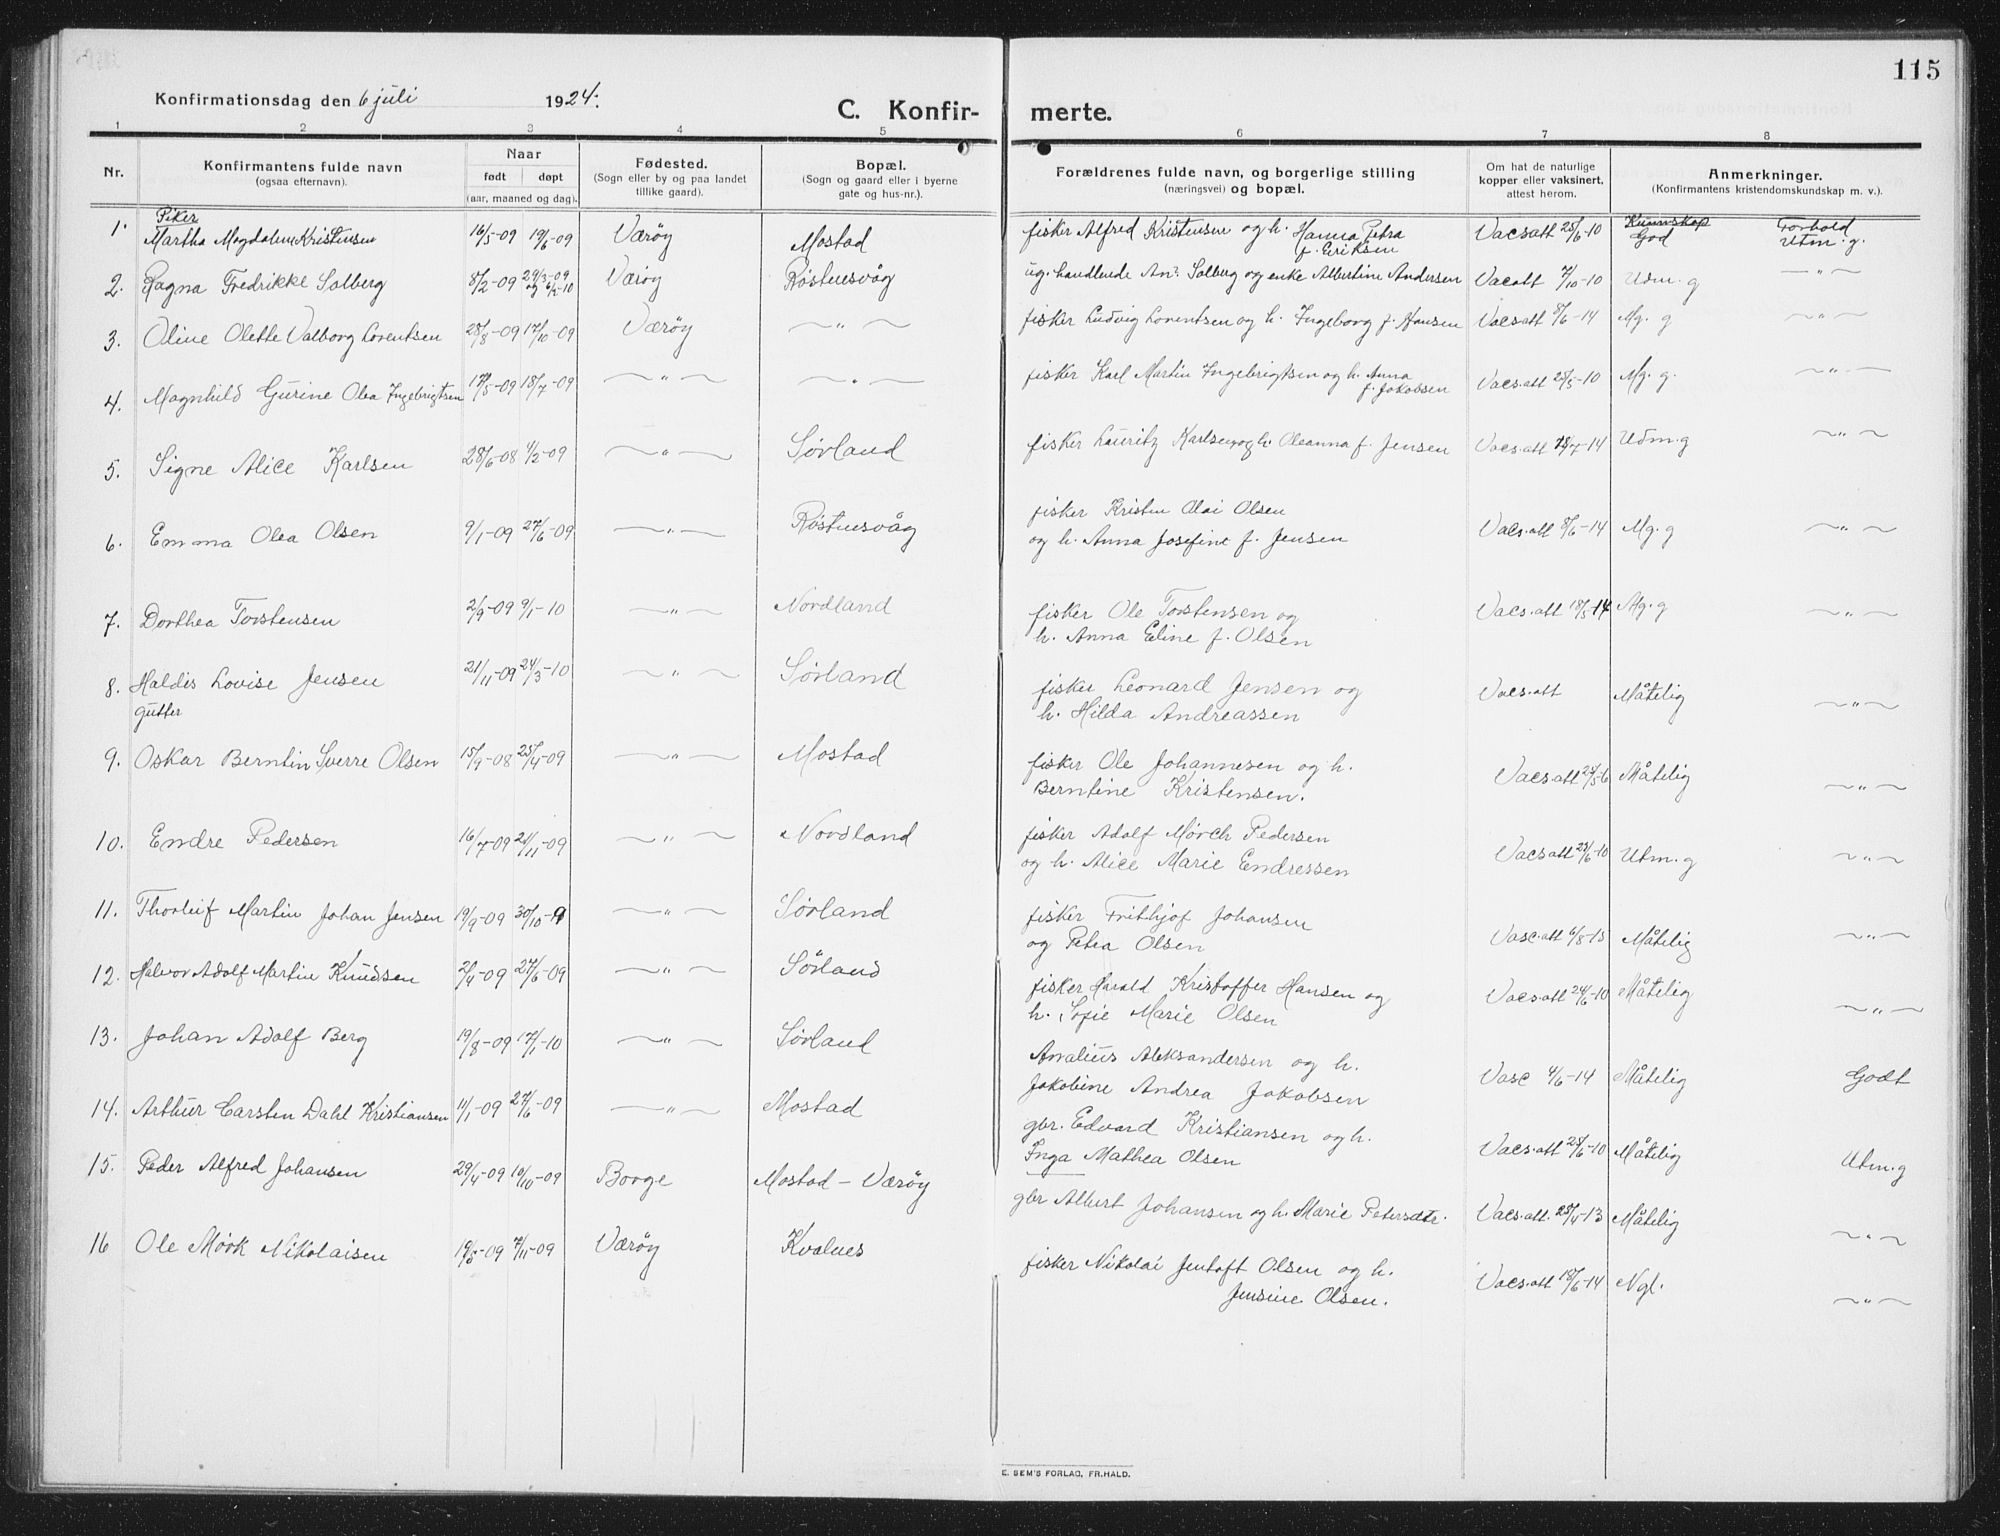 115
Konfirmationsdag den 6 juli 1924.
C. Konfir- merte.
1 2 3 4 5 6 7 8
Nr.
Konfirmantens fulde navn
(ogsaa efternavn).
Naar
født døpt
(aar, maaned og dag).
Fødested.
(Sogn eller by og paa landet
tillike gaard).
Bopæl.
(Sogn og gaard eller i byerne
gate og hus-nr.).
Forældrenes fulde navn, og borgerlige stilling
(næringsvei) og bopæl.
Om hat de naturlige
kopper eller vaksinert,
attest herom.
Anmerkninger.
(Konfirmantens kristendomskundskap m. v.).
Piker Kunnskap Forhold
1. Martha Magdalene Kristensen 16/5-09 19/6-09 Værøy Mostad fisker Alfred Kristensen og h. Hanna Petra f. Eriksen Vacsatt 25/6-10 God Utm. g.
2. Ragna Fredrikke Solberg 8/2-09 29/3-09 og 6/2-10 Værøy Røstnesvåg ug. handlende An. Solberg og enke Albertine Andersen Vacatt 7/10-10 Udm. g —"—
3. Aline Olette Valborg Lorentsen 28/8-09 17/10-09 Værøy —"— fisker Ludvig Lorentsen og h. Ingeborg f. Hansen Vacsatt 8/6-14 Mg. g —"—
4. Magnhild Gurine Olea Ingebrigtsen 17/5-09 18/7-09 —"— —"— fisker Karl Martin Ingebrigtsen og h. Anna f. Jakobsen Vacs.att 25/5-10 Mg. g. —"—
5. Signe Alice Karlsen 28/6-08 4/2-09 —"— Sørland fisker Lauritz Karlsen og h. Oleanna f. Jensen Vacs.att /7-14 Udm. g —"—
6. Emma Olea Olsen 9/1-09 27/6-09 —"— Røstnesvåg fisker Kristen Olai Olsen
og h. Anna Josefine f. Jensen Vacs.att 8/6-14 Mg. g —"—
7. Dorthea Torstensen 2/9-09 9/1-10 —"— Nordland fisker Ole Torstensen og
h. Anna Eline f. Olsen Vacs.att 18/5-14 Mg. g —"—
8. Haldis Lovise Jensen 21/11-09 24/3-10 —"— Sørland fisker Leonard Jensen og
h. Hilda Andreassen Vacs.att Måtelig —"—
gutter
9. Oskar Berntin Sverre Olsen 15/9-08 25/4-09 —"— Mostad fisker Ole Johannesen og h.
Berntine Kristensen. Vacs.att 24/5-6 Måtelig —"—
10. Endre Pedersen 16/7-09 21/11-09 —"— Nordland fisker Adolf Mørch Pedersen
og h. Alice Marie Endressen Vacsatt 23/6-10 Utm. g —"—
11. Thorleif Martin Johan Jensen 19/9-09 30/10-9 —"— Sørland fisker Frithjof Johansen
og Petra Olsen Vasc.att 6/8-15 Måtelig —"—
12. Halvor Adolf Martin Knudsen 2/4-09 27/6-09 —"— Sørland fisker Harald Kristoffer Hansen og
h. Sofie Marie Olsen Vacs.att 24/6-10 Måtelig —"—
13. Johan Adolf Berg 19/8-09 17/1-10 —"— Sørland Analius Aleksandersen og h.
Jakobine Andrea Jakobsen Vasc 4/6-14 Måtelig Godt
14. Arthur Carsten Dahl Kristiansen 11/1-09 27/6-09 —"— Mostad gbr. Edvard Kristiansen og h.
Inga Mathea Olsen Vacs.att 28/6-10 Måtelig Utm. g
15. Peder Alfred Johansen 29/4-09 10/10-09 Borge Mostad - Værøy gbr Albert Johansen og h. Marie Petersdtr. Vacs.att. 25/4-13 Måtelig —"—
16 Ole Mørk Nikolaisen 19/5-09 7/11-09 Værøy Kvalnes fisker Nikolai Jentoft Olsen og h.
Jensine Olsen. Vacs.att 18/6-14 Ngl. —"—
E. SEM'S FORLAG, FR.HALD.